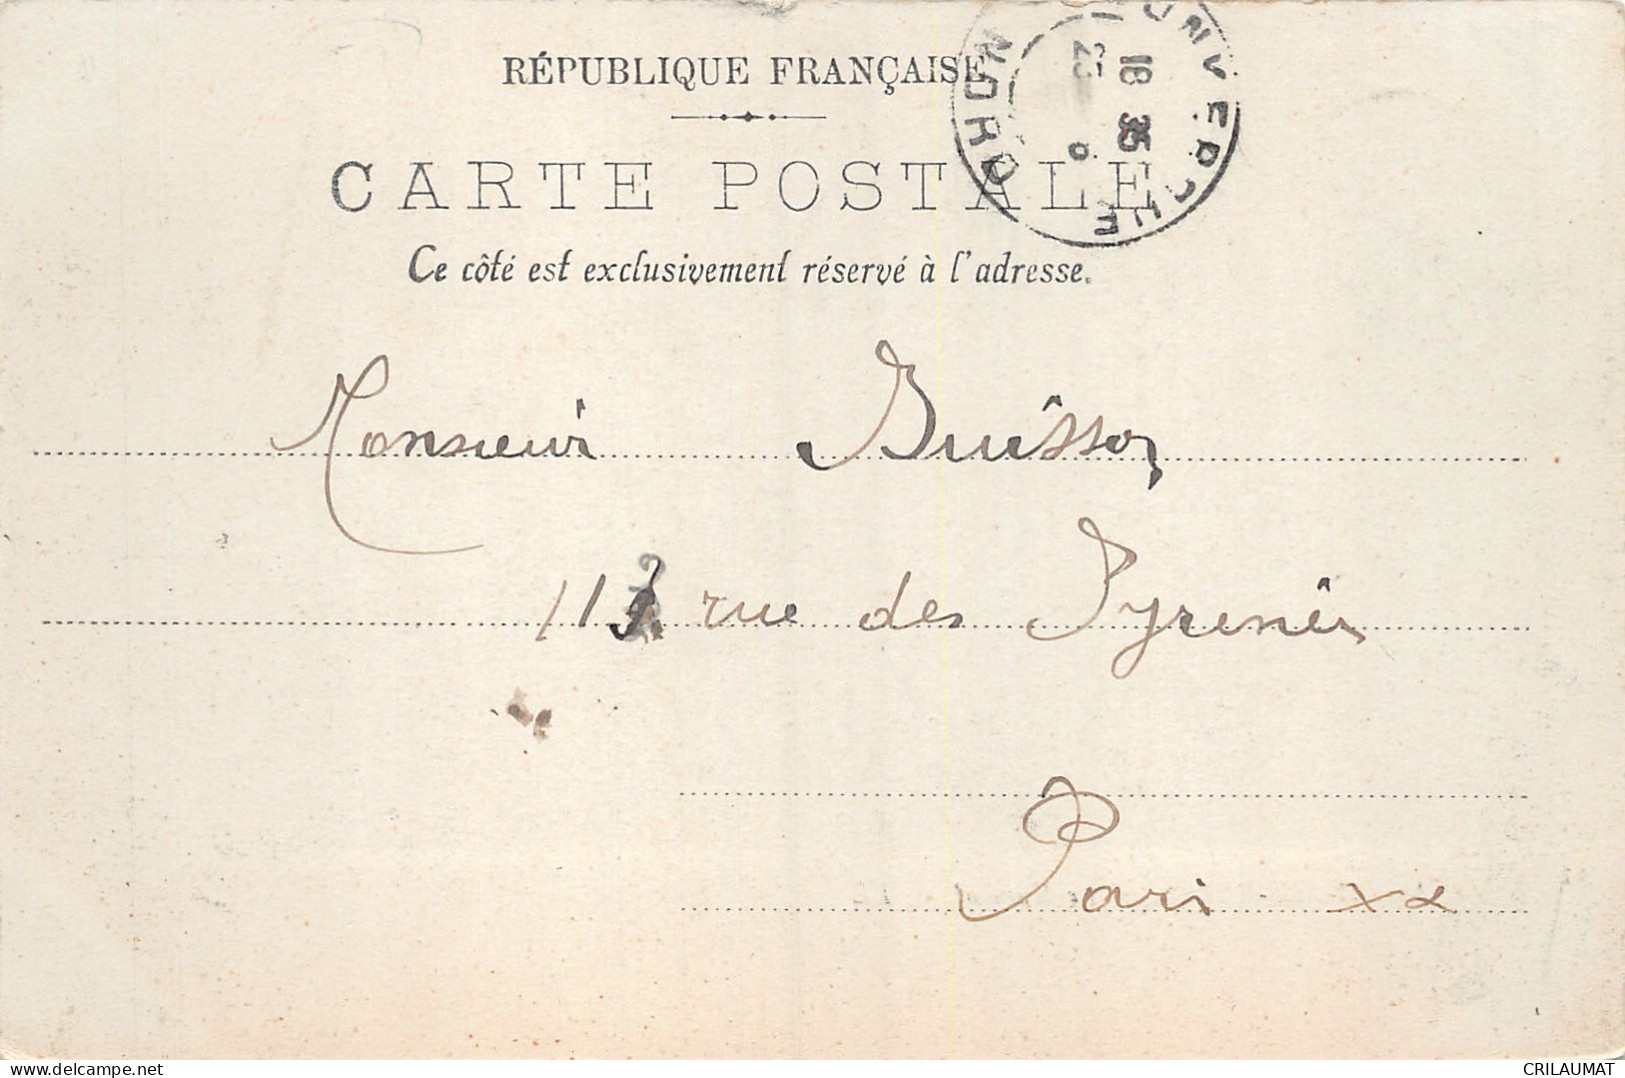 RÉPUBLIQUE FRANÇAISE
CARTE POSTALE
Ce côté est exclusivement réservé à l'adresse.
DUNKERQUE
NORD
18 35
Monsieur Buisson
rue des Pyrenées
Paris xx
delcampe.net
CRILAUMAT